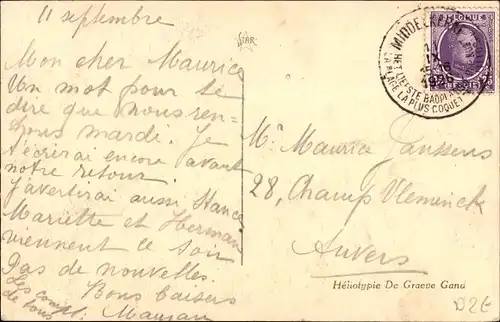 11 septembre
Mon cher Maurice
Un mot pour te
dire que nous ren-
trons mardi. Je
t'écrirai encore avant
notre retour.
J'avertirai aussi
Mariette et Herman
viennent le soir
Pas de nouvelles.
Bons baisers
Maman
Les compl.
de tous
STAR
MIDDELKERKE
1926
HET LIEFSTE BADPLAATSJE
LA PLAGE LA PLUS COQUETTE
BELGIQUE
Mr Maurice Janssens
28, Champ Vleminck
Anvers
Héliotypie De Graeve Gand